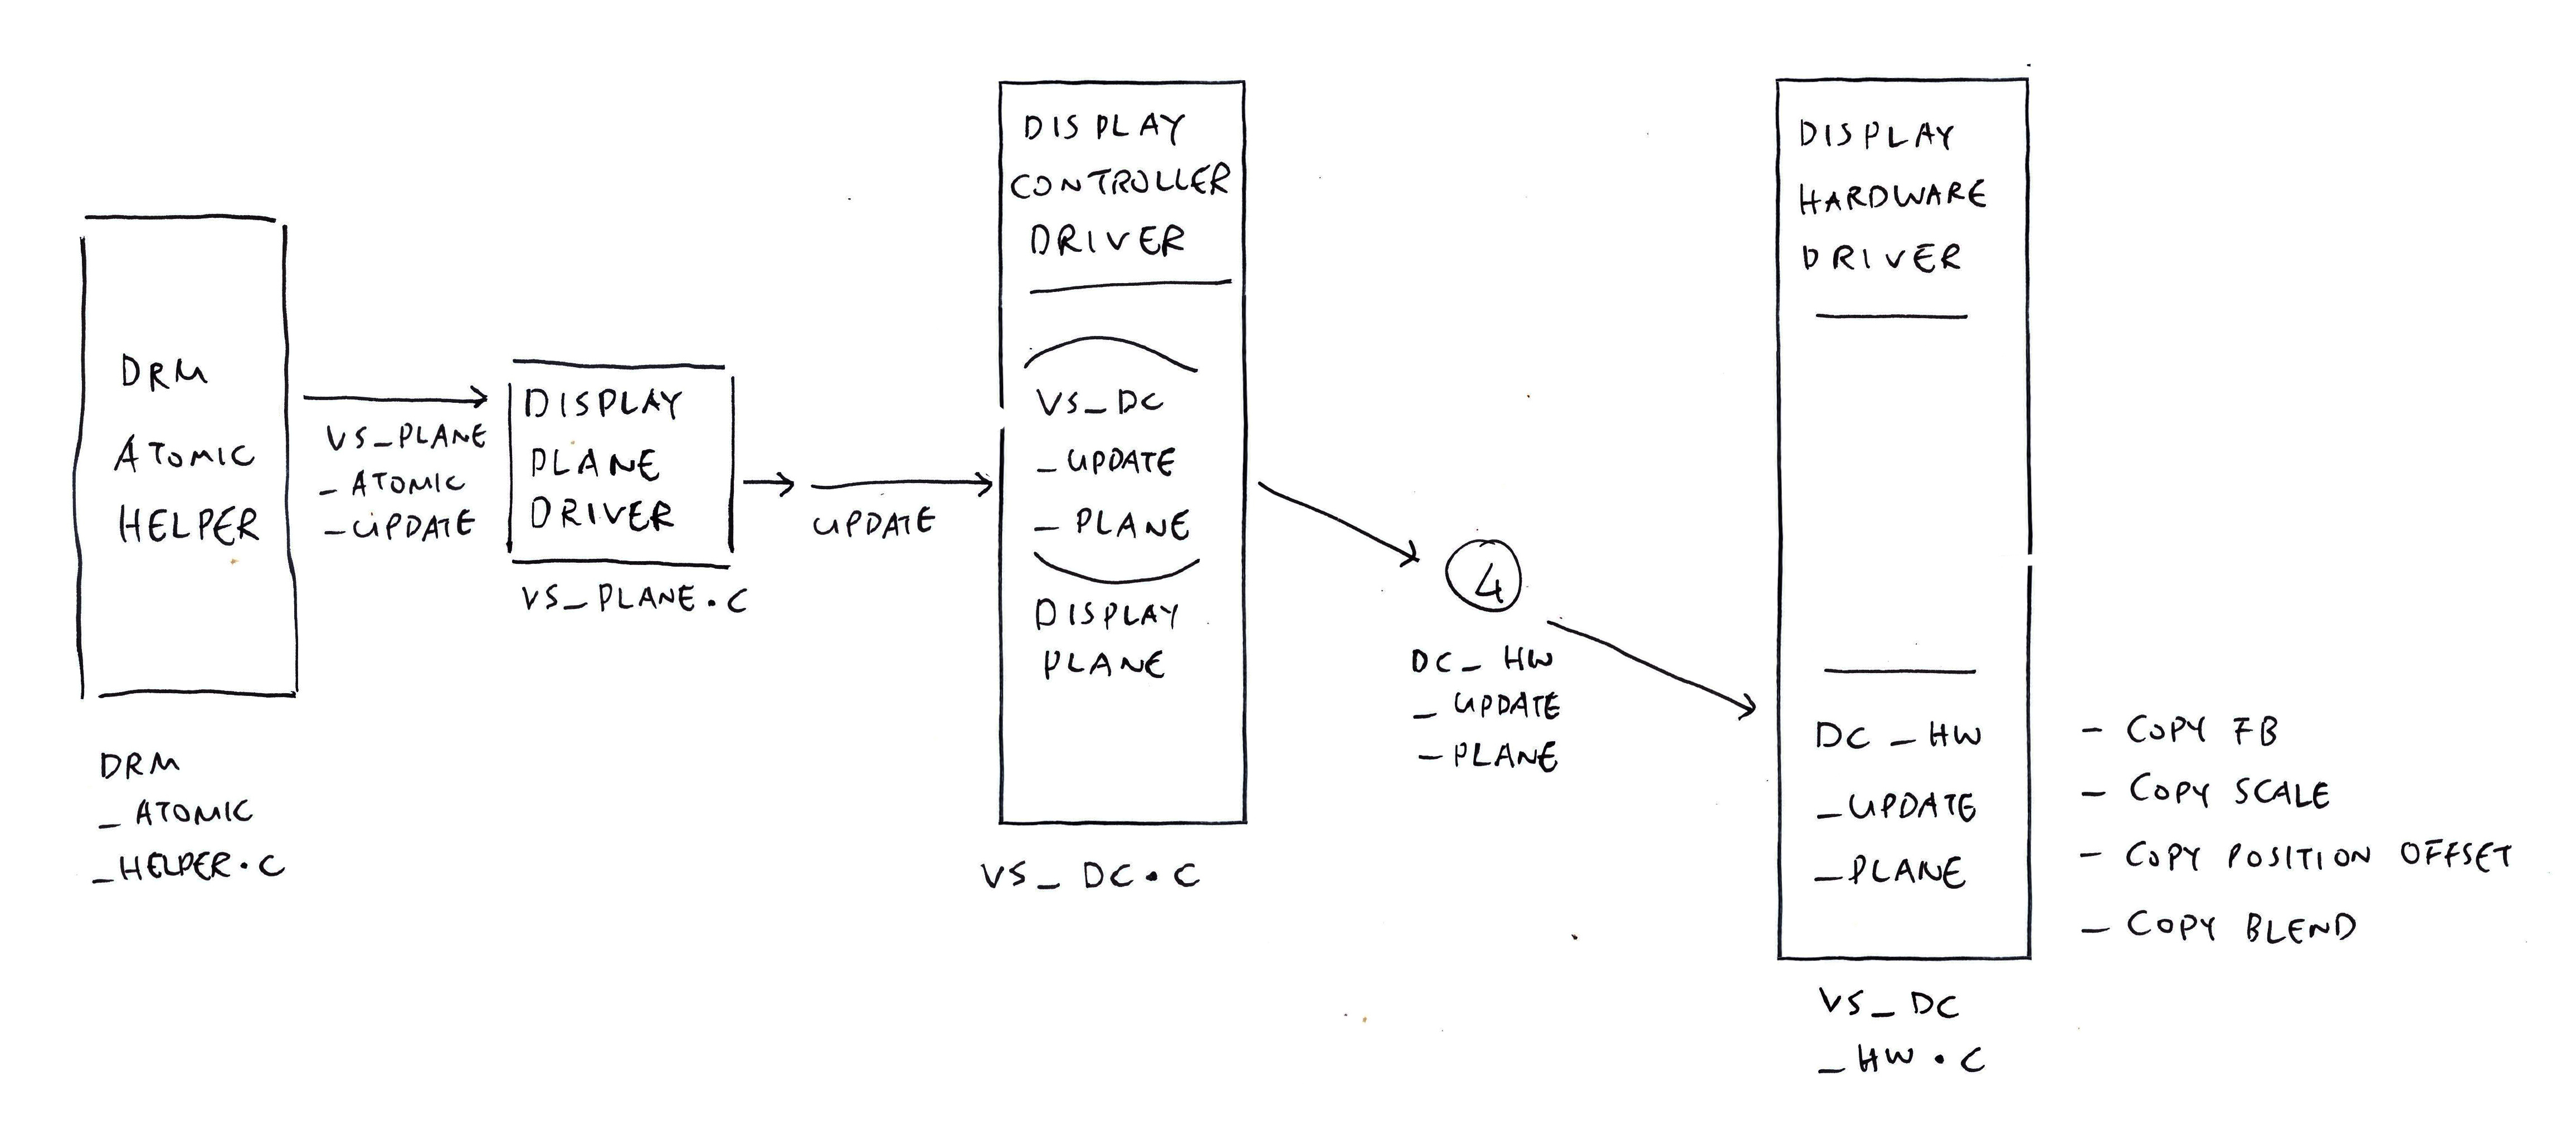 DRM
ATOMIC
HELPER
DRM
_ ATOMIC
_HELPER.C
VS_PLANE
_ ATOMIC
_UPDATE
DISPLAY
PLANE
DRIVER
VS_PLANE.C
UPDATE
DISPLAY
CONTROLLER
DRIVER
VS_DC
_UPDATE
_ PLANE
DISPLAY
PLANE
VS_ DC.C
4
DC_ HW
_ UPDATE
_PLANE
DISPLAY
HARDWARE
DRIVER
DC _HW
_UPDATE
_PLANE
VS_ DC
_HW.C
- COPY FB
- COPY SCALE
- COPY POSITION OFFSET
- COPY BLEND